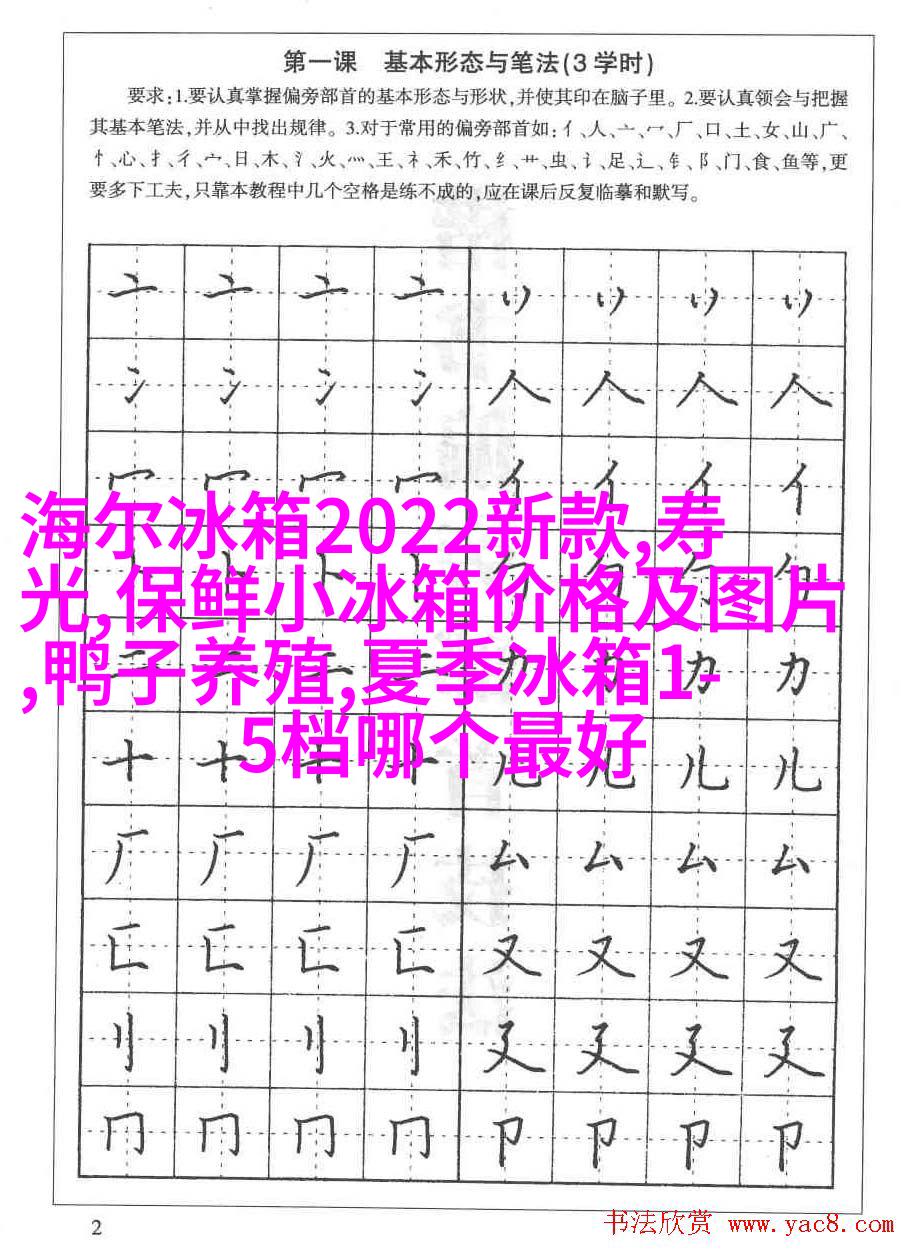 第一课　基本形态与笔法(3学时)
要求:1.要认真掌握偏旁部首的基本形态与形状,并使其印在脑子里。2.要认真领会与把握
其基本笔法,并从中找出规律。3.对于常用的偏旁部首如:亻、人、亠、冖、厂、口、土、女、山、广、
忄、心、扌、彳、宀、日、木、氵、火、灬、王、礻、禾、竹、纟、艹、虫、讠、足、辶、钅、阝、门、食、鱼等,更
要多下工夫,只靠本教程中几个空格是练不成的,应在课后反复临摹和默写。
亠 亠 亠 亠 丷 丷 丷 丷
冫 冫 冫 冫 人 人 人 人
冖 冖 冖 冖 亻 亻 亻 亻
海尔冰箱2022新款,寿
光,保鲜小冰箱价格及图片
,鸭子养殖,夏季冰箱1-
5档哪个最好
力 力
十 十 十 十 儿 儿 儿 儿
厂 厂 厂 厂 厶 厶 厶 厶
匚 匚 匚 匚 又 又 又 又
刂 刂 刂 刂 廴 廴 廴 廴
冂 冂 冂 冂 卩 卩 卩 卩
2
书法欣赏 www.yac8.com